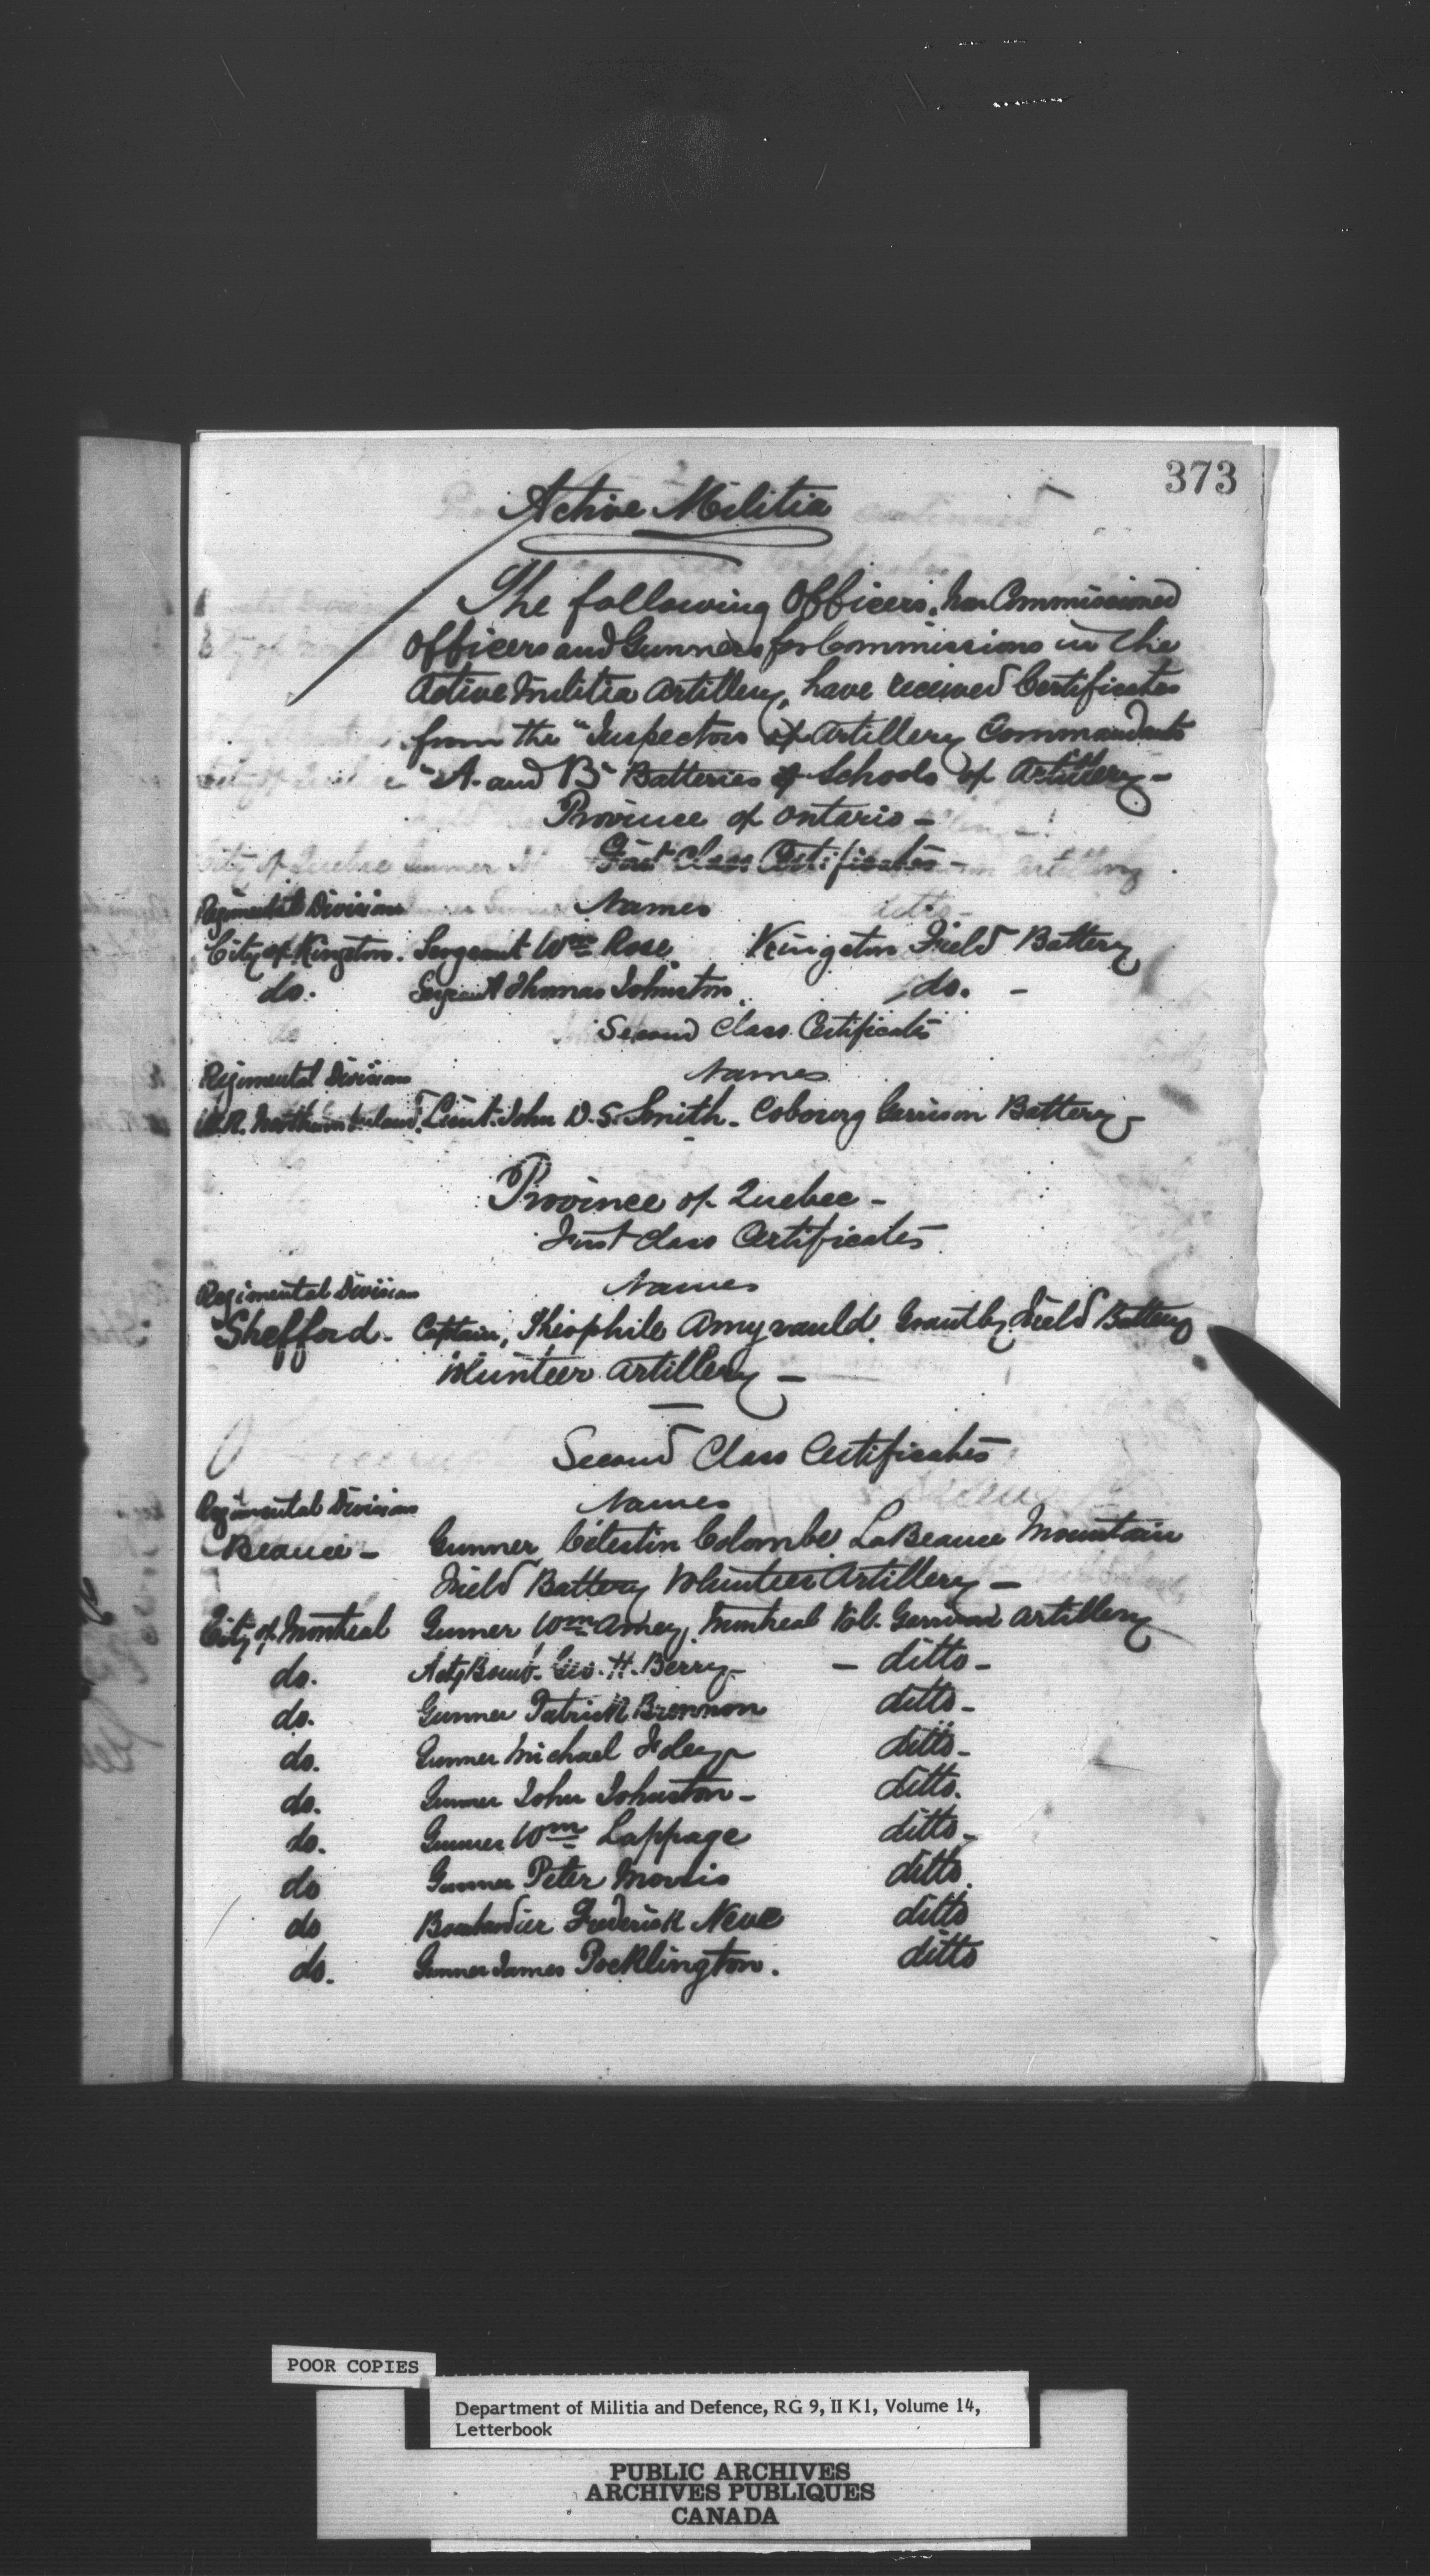 373
Active Militia
The following Officers, Non Commissioned
Officers and Gunners for Commissions in the
Active Militia Artillery, have received Certificates
from the "Inspectors of Artillery Commandants
"A. and B" Batteries of Schools of Artillery -
Province of Ontario -
First Class Certificates -
Regimental Divisions Names
City of Kingston. Sergeant Wm Rose. Kingston Field Battery
do. Sergeant Thomas Johnston. do. -
Second Class Certificates
Regimental Divisions Names
W.R. Lieut. John D. S. Smith. Cobourg Garrison Battery -
Province of Quebec -
First Class Certificates
Regimental Division Names
Shefford - Captain, Théophile Amyrauld. Grantby Field Battery
Volunteer Artillery -
Second Class Certificates
Regimental Division Names
Beauce - Gunner Célestin Colombe. LaBeauce Mountain
Field Battery Volunteer Artillery -
City of Montreal Gunner Wm Amey, Montreal Vol. Garrison Artillery
do. Actg Bomb. Geo. H. Berry - - ditto -
do. Gunner Patrick Brennon ditto -
do. Gunner Michael Foley - ditto -
do. Gunner John Johnston - ditto.
do. Gunner Wm Lappage ditto -
do Gunner Peter Morris ditto.
do Bombardier Frederick Neve ditto
do. Gunner James Pocklington. ditto
POOR COPIES
Department of Militia and Defence, RG 9, II K1, Volume 14,
Letterbook
PUBLIC ARCHIVES
ARCHIVES PUBLIQUES
CANADA